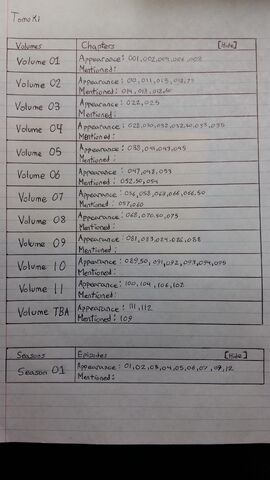 Tomoki
Volumes Chapters [Hide]
Volume 01 Appearance: 001,002,004,006,008
Mentioned:
Volume 02 Appearance: 010,011,015,
Mentioned: 014,018,018.50
Volume 03 Appearance: 022,025
Mentioned:
Volume 04 Appearance: 028,030,032,032.50,033,035
Mentioned:
Volume 05 Appearance: 038,
Mentioned:
Volume 06 Appearance: 047,048,053
Mentioned: 052.50,054
Volume 07 Appearance: 056,058,063,066,066.50
Mentioned: 057,060
Volume 08 Appearance: 068,070.50,075
Mentioned:
Volume 09 Appearance: 081,083,084,086,088
Mentioned:
Volume 10 Appearance: 089.50,091,092,093,094,095
Mentioned:
Volume 11 Appearance: 100,104,106,108
Mentioned:
Volume TBA Appearance: 111,112
Mentioned: 109
Seasons Episodes [Hide]
Season 01 Appearance: 01,02,03,04,05,06,07,09,12
Mentioned: